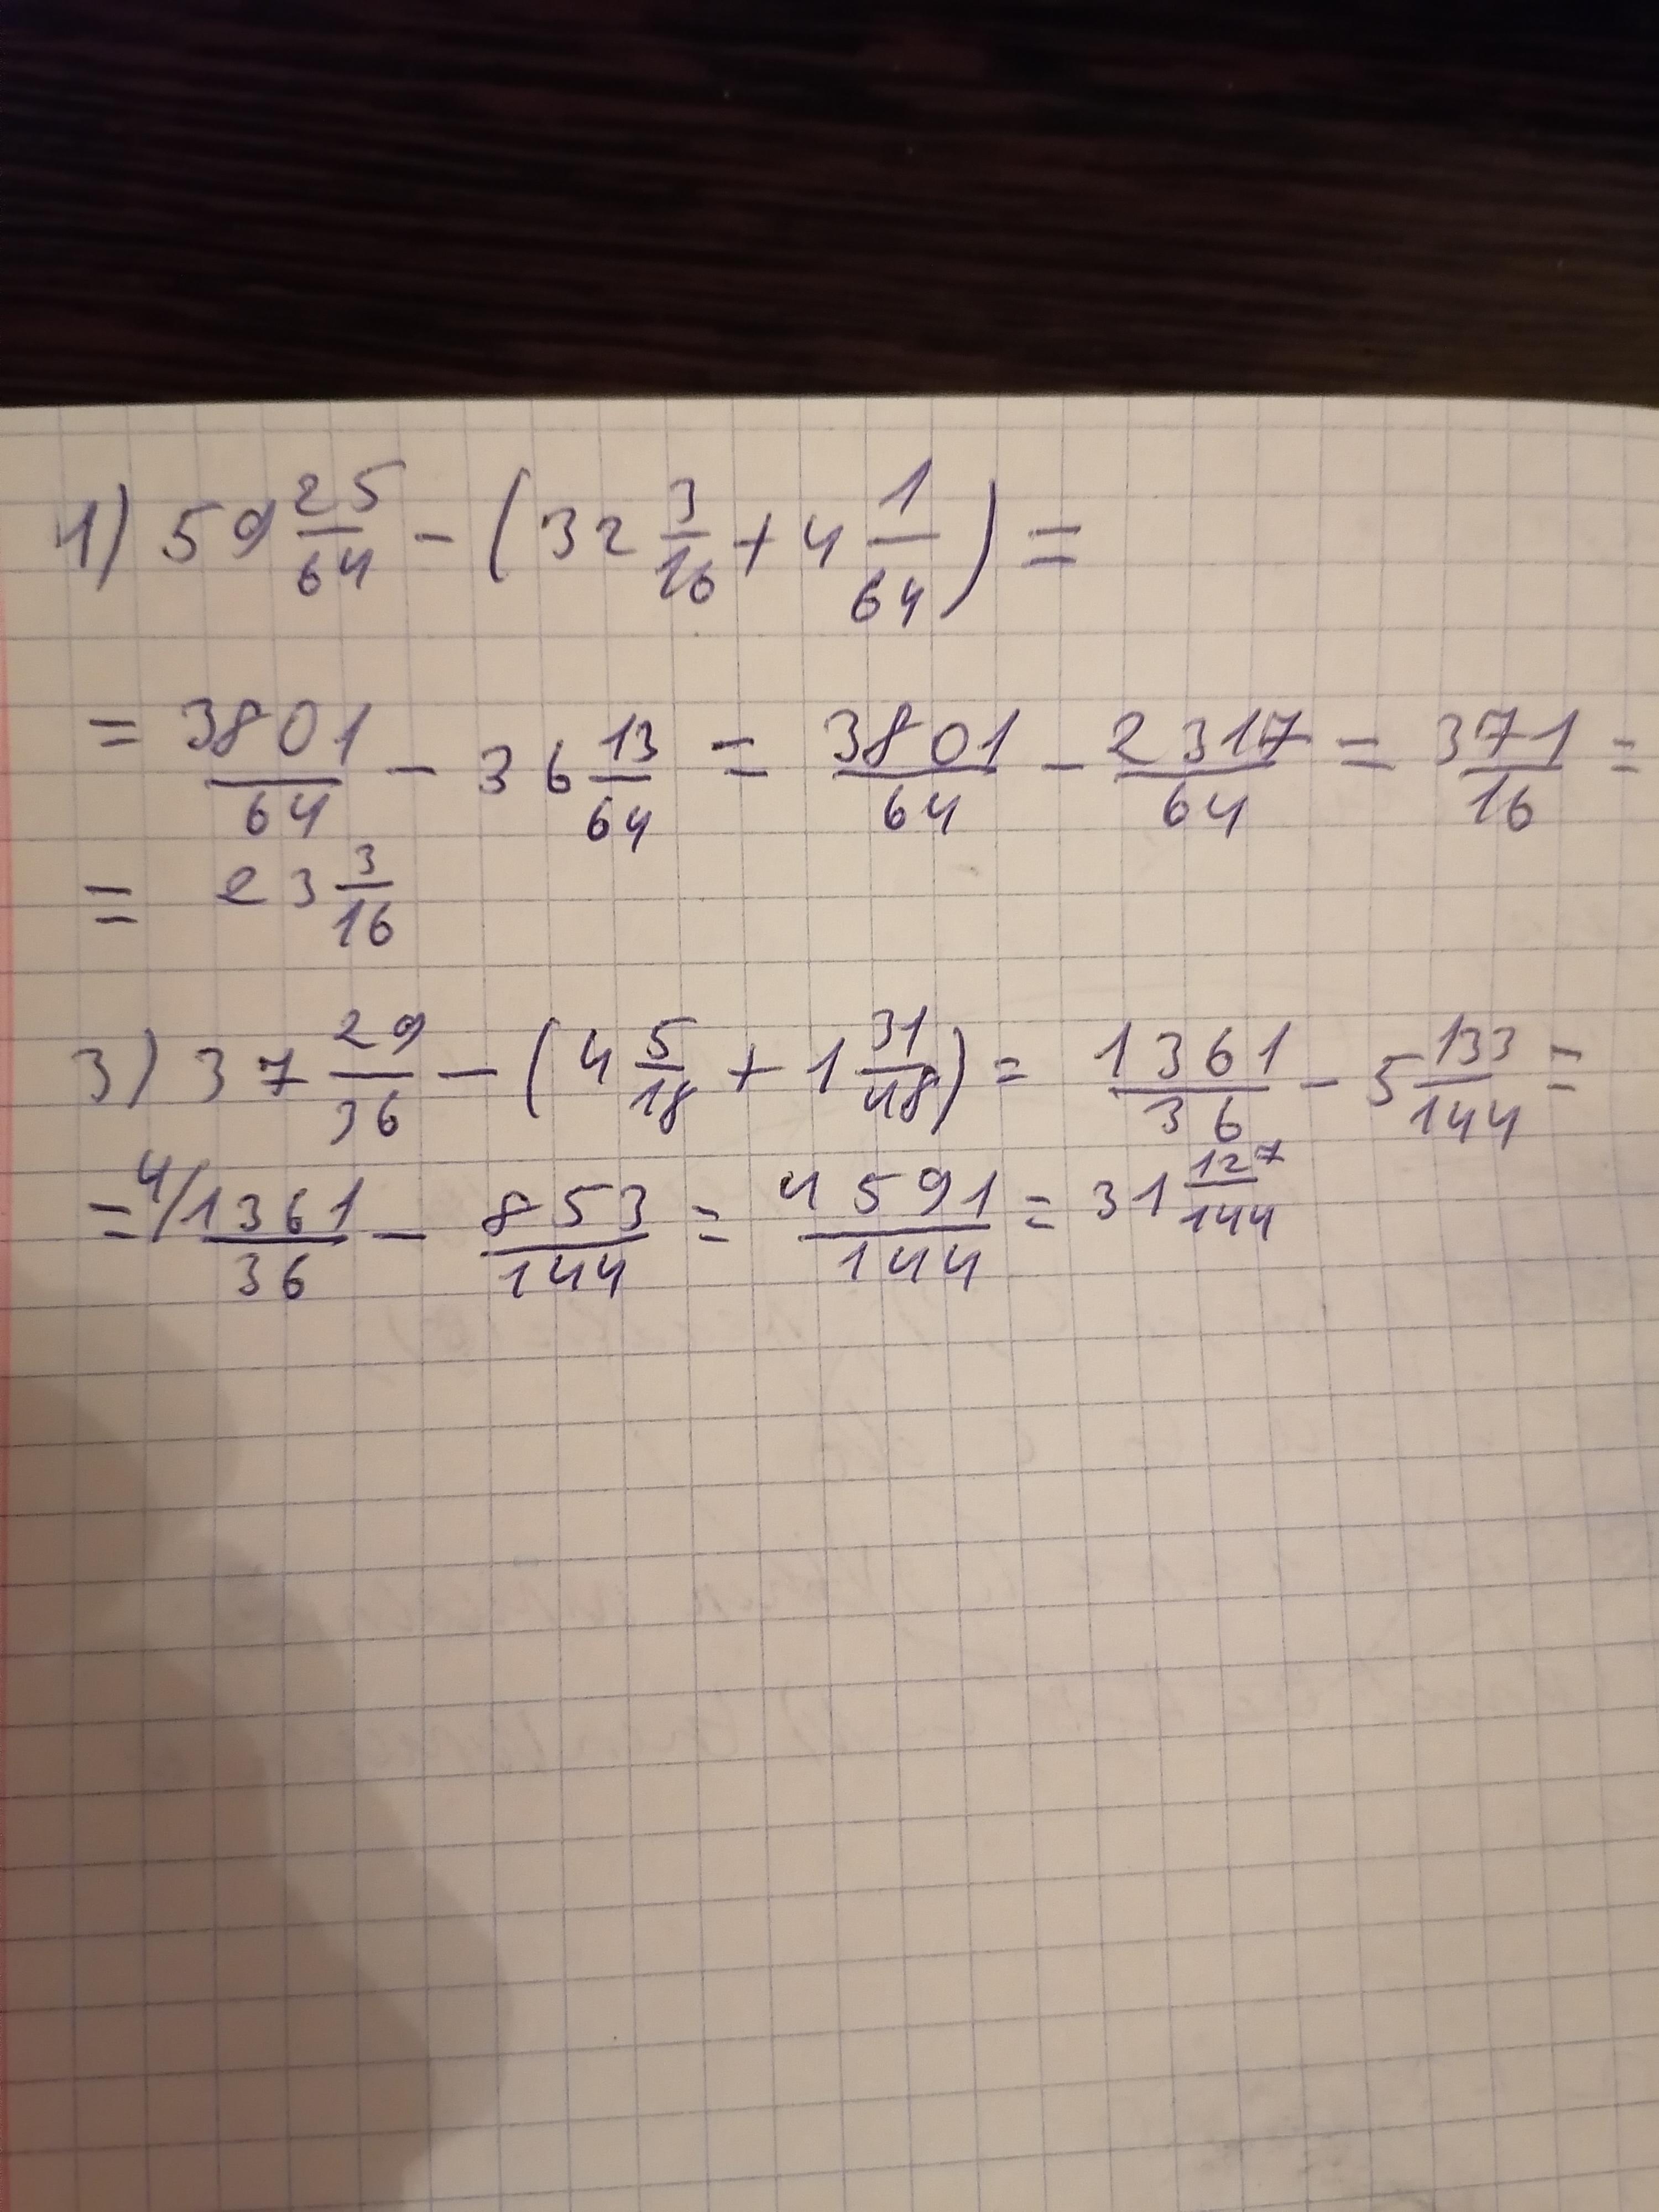 1) 59 25/64 - (32 3/16 + 4 1/64) =
= 3801/64 - 36 13/64 = 3801/64 - 2317/64 = 371/16 =
= 23 3/16
3) 37 29/36 - (4 5/18 + 1 31/48) = 1361/36 - 5 133/144 =
= 4/ 1361/36 - 853/144 = 4591/144 = 31 127/144